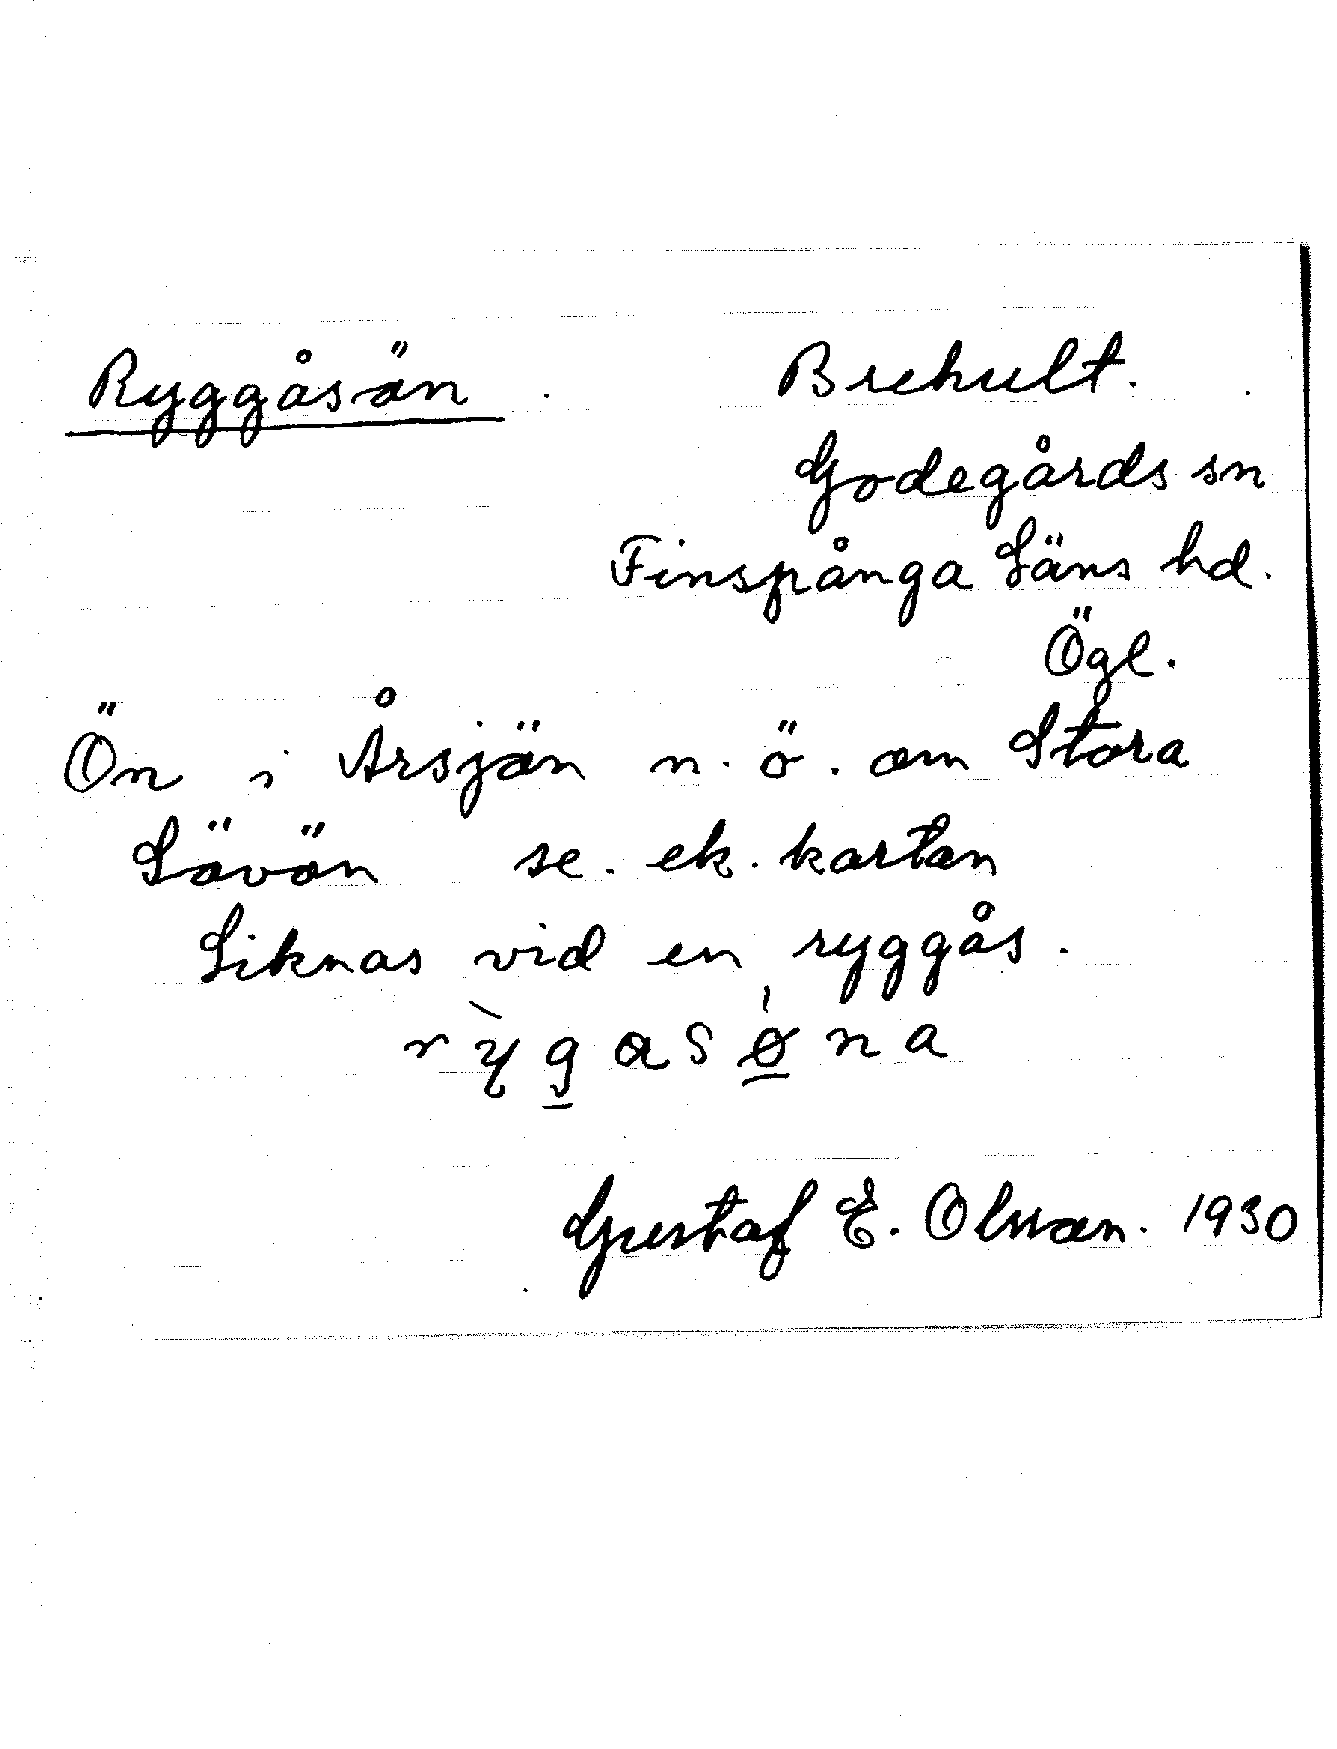 Ryggåsön Brehult.
Godegårds sn
Finspånga Läns hd.
Ögl.
Ön i Årsjön n. ö. om Stora
Lövön se. ek. kartan
Liknas vid en ryggås.
rỳgasøna
Gustaf E. Olsson. 1930